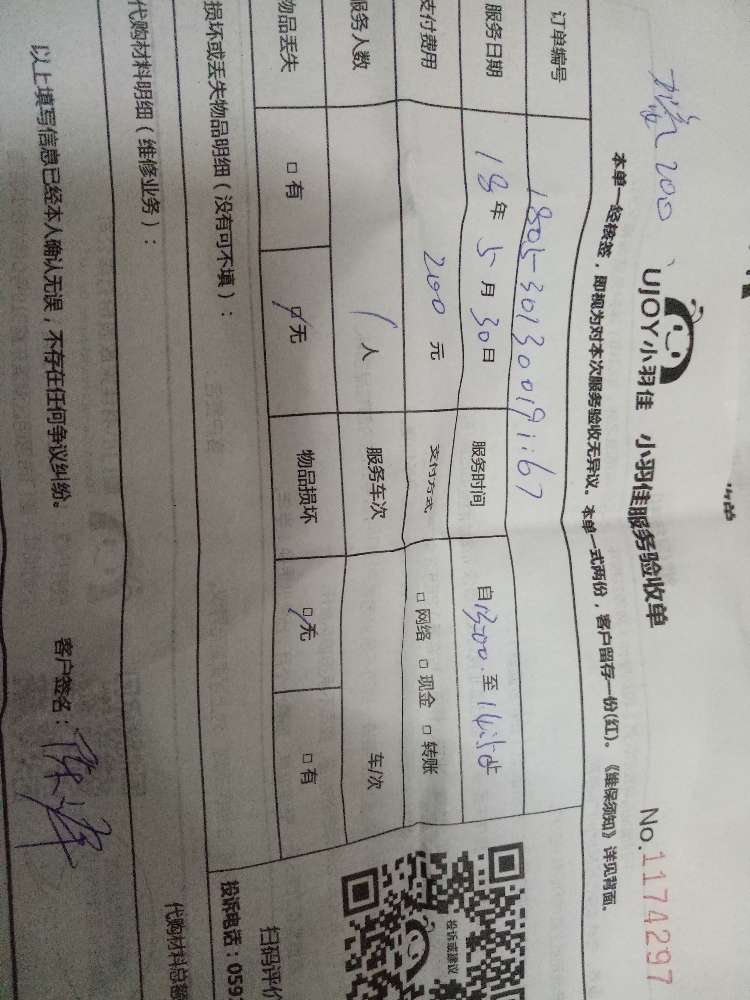 UJOY小羽佳 小羽佳服务验收单
No.1174297
本单一经核签，即视为对本次服务验收无异议。本单一式两份，客户留存一份(红)。《维保须知》详见背面。
订单编号
服务日期 18年5月30日 服务时间 自1300至
支付费用 200元 支付方式 □网络 □现金 □转账
服务人数 1人 服务车次 车/次
物品丢失 □有 □无 物品损坏 □无 □有
损坏或丢失物品明细（没有可不填）：
代购材料明细（维修业务）：
代购材料总额
以上填写信息已经本人确认无误，不存在任何争议纠纷。 客户签名：
投诉或建议
扫码评价
投诉电话：059
200